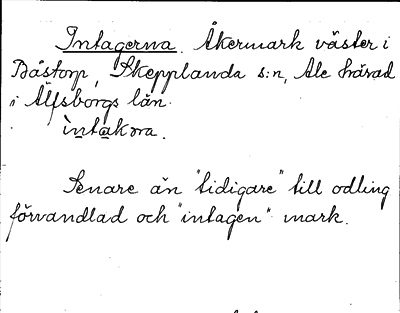 Intagerna. Åkermark väster i
Båstorp, Skepplanda s:n, Ale härad
i Älfsborgs län.
ìntakꝛa.
Senare än "tidigare" till odling
förvandlad och "intagen" mark.